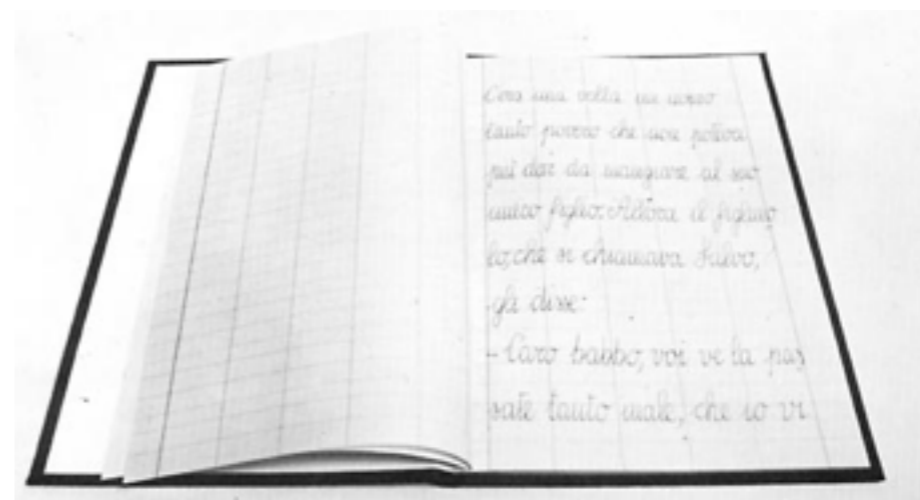 C'era una volta un uomo
tanto povero che non poteva
più dar da mangiare al suo
unico figlio. Allora il figliuo
lo, che si chiamava Salvo,
gli disse:
- Caro babbo, voi ve la pas
sate tanto male, che io vi